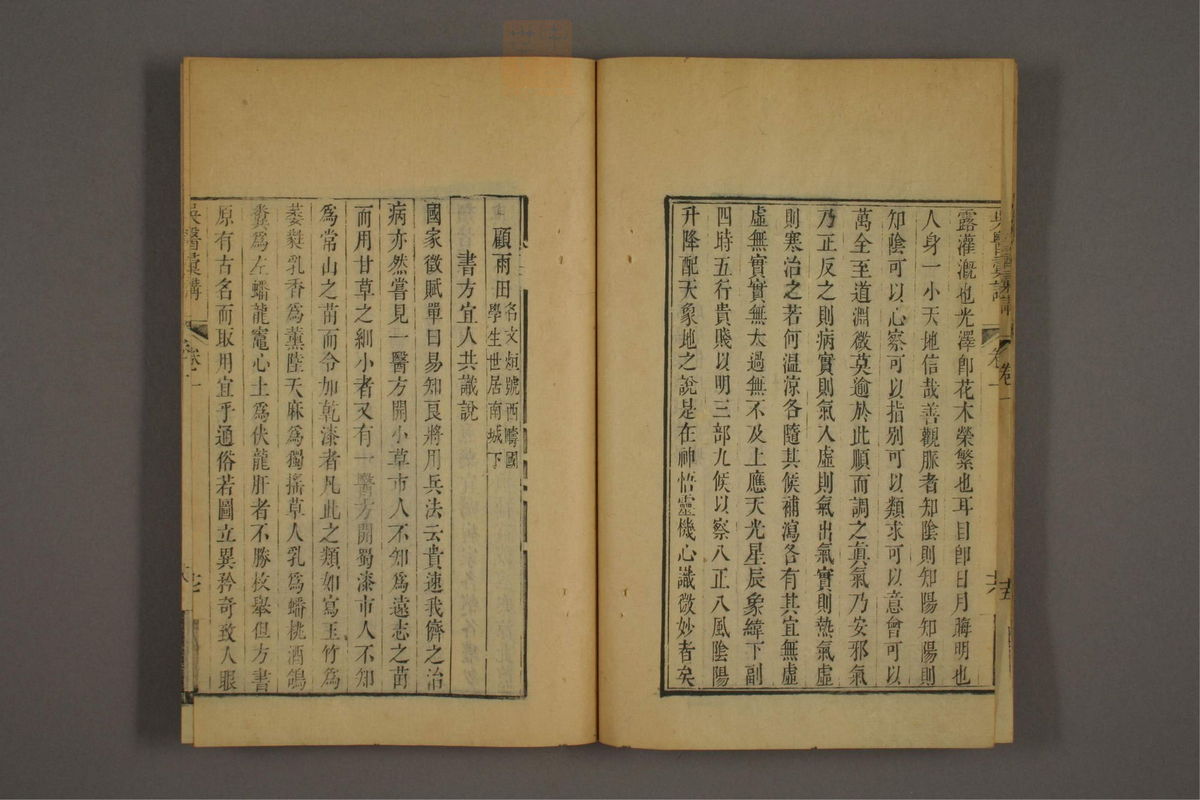 吳醫彙講
卷一
露灌漑也光澤卽花木榮繁也耳目卽日月晦明也
人身一小天地信哉善觀脈者知陰則知陽知陽則
知陰可以心察可以指別可以類求可以意會可以
萬全至道淵微莫逾於此順而調之眞氣乃安邪氣
乃正反之則病實則氣入虛則氣出氣實則熱氣虛
則寒治之若何温涼各隨其候補瀉各有其宜無虛
虛無實實無太過無不及上應天光星辰象緯下副
四時五行貴賤以明三部九候以察八正八風陰陽
升降配天象地之說是在神悟靈機心識微妙者矣
顧雨田
名文烜號西疇國
學生世居南城下
書方宜人共識說
國家徵賦單曰易知良將用兵法云貴速我儕之治
病亦然嘗見一醫方開小草市人不知爲遠志之苗
而用甘草之細小者又有一醫方開蜀漆市人不知
爲常山之苗而令加乾漆者凡此之類如寫玉竹爲
萎蕤乳香爲薰陸天麻爲獨搖草人乳爲蟠桃酒鴿
糞爲左蟠龍竈心土爲伏龍肝者不勝枚舉但方書
原有古名而取用宜乎通俗若圖立異矜奇致人眼
吳醫彙講
卷一